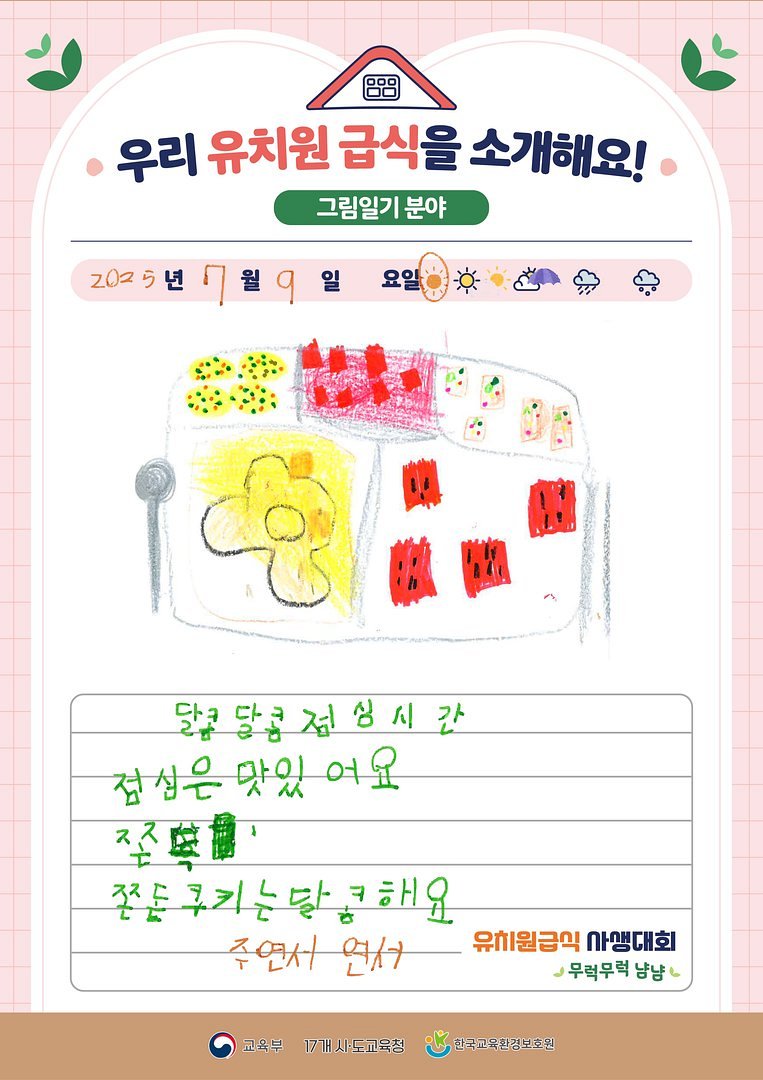 우리 유치원 급식을 소개해요!
그림일기 분야
2025년 7월 9일 요일
달콤달콤 점심시간
점심은 맛있어요
쫀득쿠키는 달콤해요
주연서 연서
유치원급식 사생대회
무럭무럭 냠냠
교육부 17개 시·도교육청 한국교육환경보호원